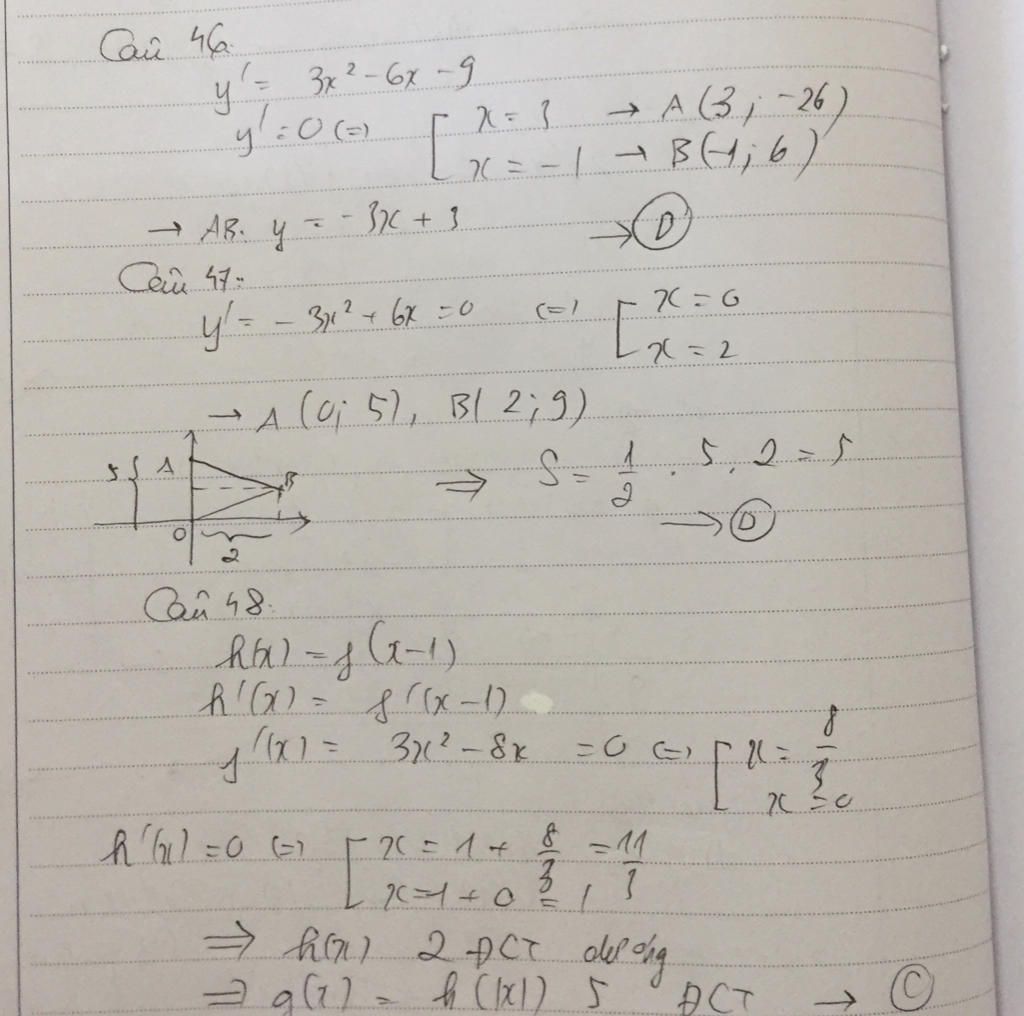 Câu 46.
y' = 3x² - 6x - 9
y' = 0 (=) [ x = 3 → A (3 ; -26)
x = -1 → B(-1 ; 6)
→ AB. y = -3x + 3 → D
Câu 47:
y' = - 3x² + 6x = 0 (=) [ x = 0
x = 2
→ A (0; 5), B( 2 ; 9)
5 { A B
⇒ S = 1/2 . 5 . 2 = 5
O 2
→ D
Câu 48.
h(x) = f (x-1)
h'(x) = f'(x-1)
f'(x) = 3x² - 8x = 0 (=) [ x = 8/3
x = 0
h'(x) = 0 (=) [ x = 1 + 8/3 = 11/3
x = 1 + 0 = 1
⇒ h(x) 2 ĐCT
⇒ g(x) = h(|x|) 5 ĐCT → C